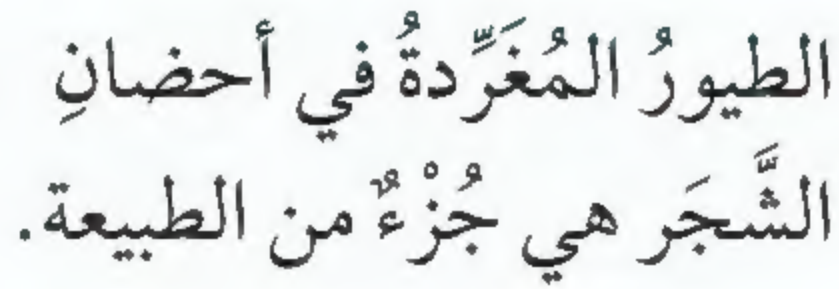 الطيورُ المُغَرِّدةُ في أحضانِ
الشَّجَر هي جُزْءٌ من الطبيعة.